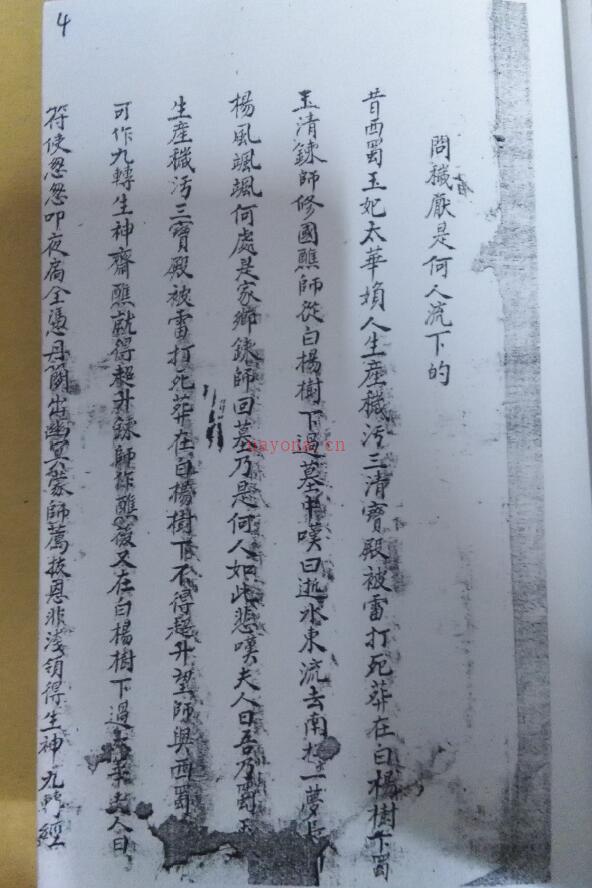 4
問穢厭是何人流下的
昔西蜀玉妃太華娘人生產穢污三清寶殿被雷打死葬在白楊樹下蜀
玉清鍊師修國醮師從白楊樹下過墓中嘆曰逝水東流去南柯一夢長
楊風颯颯何處是家鄉鍊師回墓乃是何人如此悲嘆夫人曰吾乃蜀玉
生產穢污三寶殿被雷打死葬在白楊樹下不得超升望師與西蜀
可作九轉生神齋醮就得超升鍊師作醮後又在白楊樹下過夫人曰
符使忽忽叩夜扃全憑丹闕出幽冥蒙師薦拔恩非淺領得生神九轉經
nayona.cn